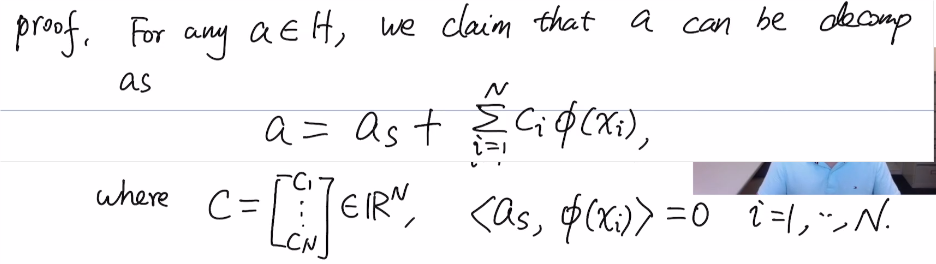 proof. For any a ∈ H, we claim that a can be decomp
as
a = as + N∑i=1 ci ϕ(xi),
where C = [c1 ⋮ cN] ∈ ℝᴺ, <as, ϕ(xi)> = 0 i=1, ⋯, N.